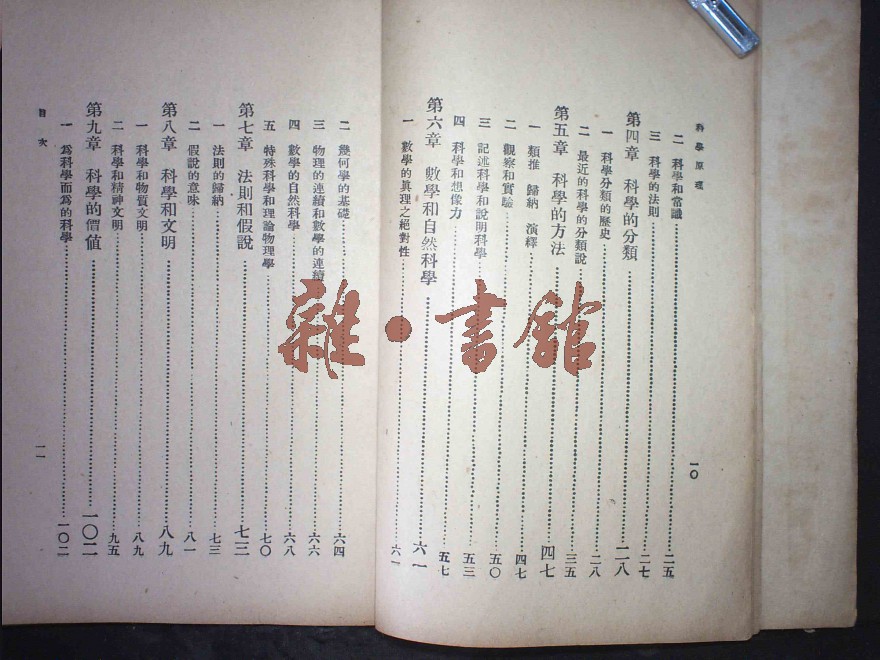 科學原理
一〇
二 科學和常識……二五
三 科學的法則……二七
第四章 科學的分類……二八
一 科學分類的歷史……二八
二 最近的科學的分類說……三五
第五章 科學的方法……四七
一 類推 歸納 演釋……四七
二 觀察和實驗……五〇
三 記述科學和說明科學……五三
四 科學和想像力……五七
第六章 數學和自然科學……六一
一 數學的眞理之絕對性……六一
二 幾何學的基礎……六四
三 物理的連續和數學的連續……六六
四 數學的自然科學……六八
五 特殊科學和理論物理學……七〇
第七章 法則和假說……七三
一 法則的歸納……七三
二 假說的意味……八一
第八章 科學和文明……八九
一 科學和物質文明……八九
二 科學和精神文明……九五
第九章 科學的價值……一〇二
一 爲科學而爲的科學……一〇二
目次
一一
雜·書館